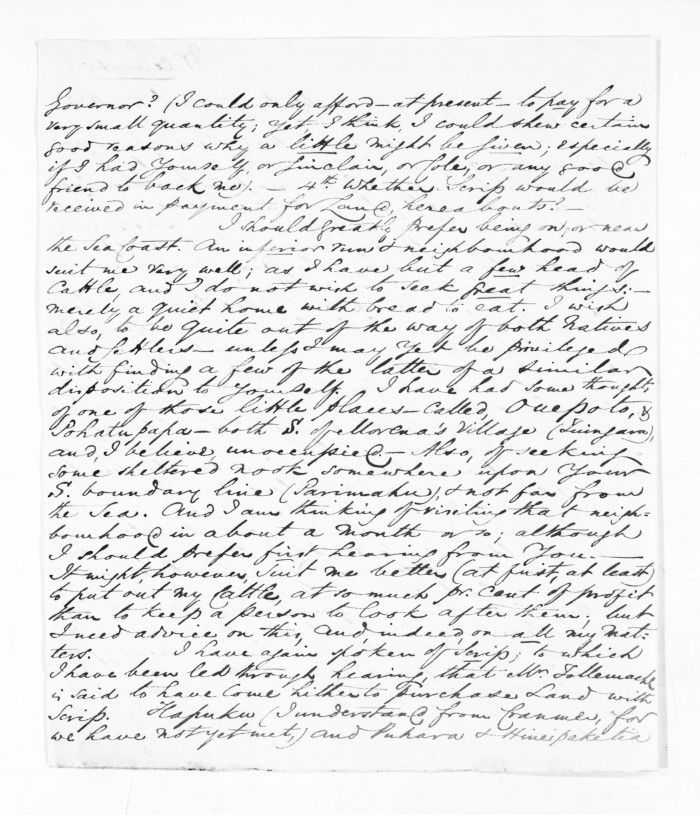 Governor? (I could only afford—at present—to pay for a
very small quantity; yet, I think, I could shew certain
good reasons why a little might be given; especially
if I had Yourself, or Sinclair, or Cole, or any good
friend to back me).— 4th. Whether Scrip would be
received in payment for Land, hereabouts?—
I should greatly prefer being on, or near
the Sea Coast. An inferior run & neighbourhood would
suit me very well; as I have but a few head of
Cattle, and I do not wish to seek great things:—
merely a quiet home with bread to eat. I wish
also, to be quite out of the way of both Natives
and Settlers—unless I may yet be privileged
with finding a few of the latter of a similar
disposition to Yourself. I have had some thoughts
of one of those little places—called, Ouepoto, &
Pohatupapa—both S. of Morena's Village (Tuingara),
and, I believe, unoccupied.—Also, of seeking
some sheltered nook somewhere upon Your
S. boundary line (Parimahu), & not far from
the Sea. And I am thinking of visiting that neigh-
bourhood in about a month or so; although
I should prefer first hearing from You.—
It might, however, suit me better (at first, at least)
to put out my Cattle, at so much pr. cent. of profit
than to keep a person to look after them; but
I need advice on this, and, indeed, on all my mat-
ters. I have again spoken of Scrip; to which
I have been led through hearing, that Mr. Tollemache
is said to have come hither to Purchase Land with
Scrip. Hapuku (I understand from Cranmer, for
we have not yet met,) and Puhara & Hineipaketia